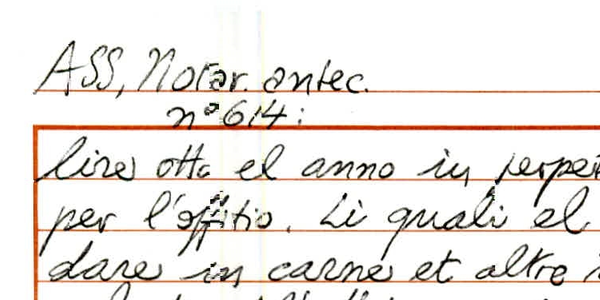 ASS, Notar. antec.
n° 614:
lire otto el anno in
per l'offitio. Li quali el
dare in carne et altre